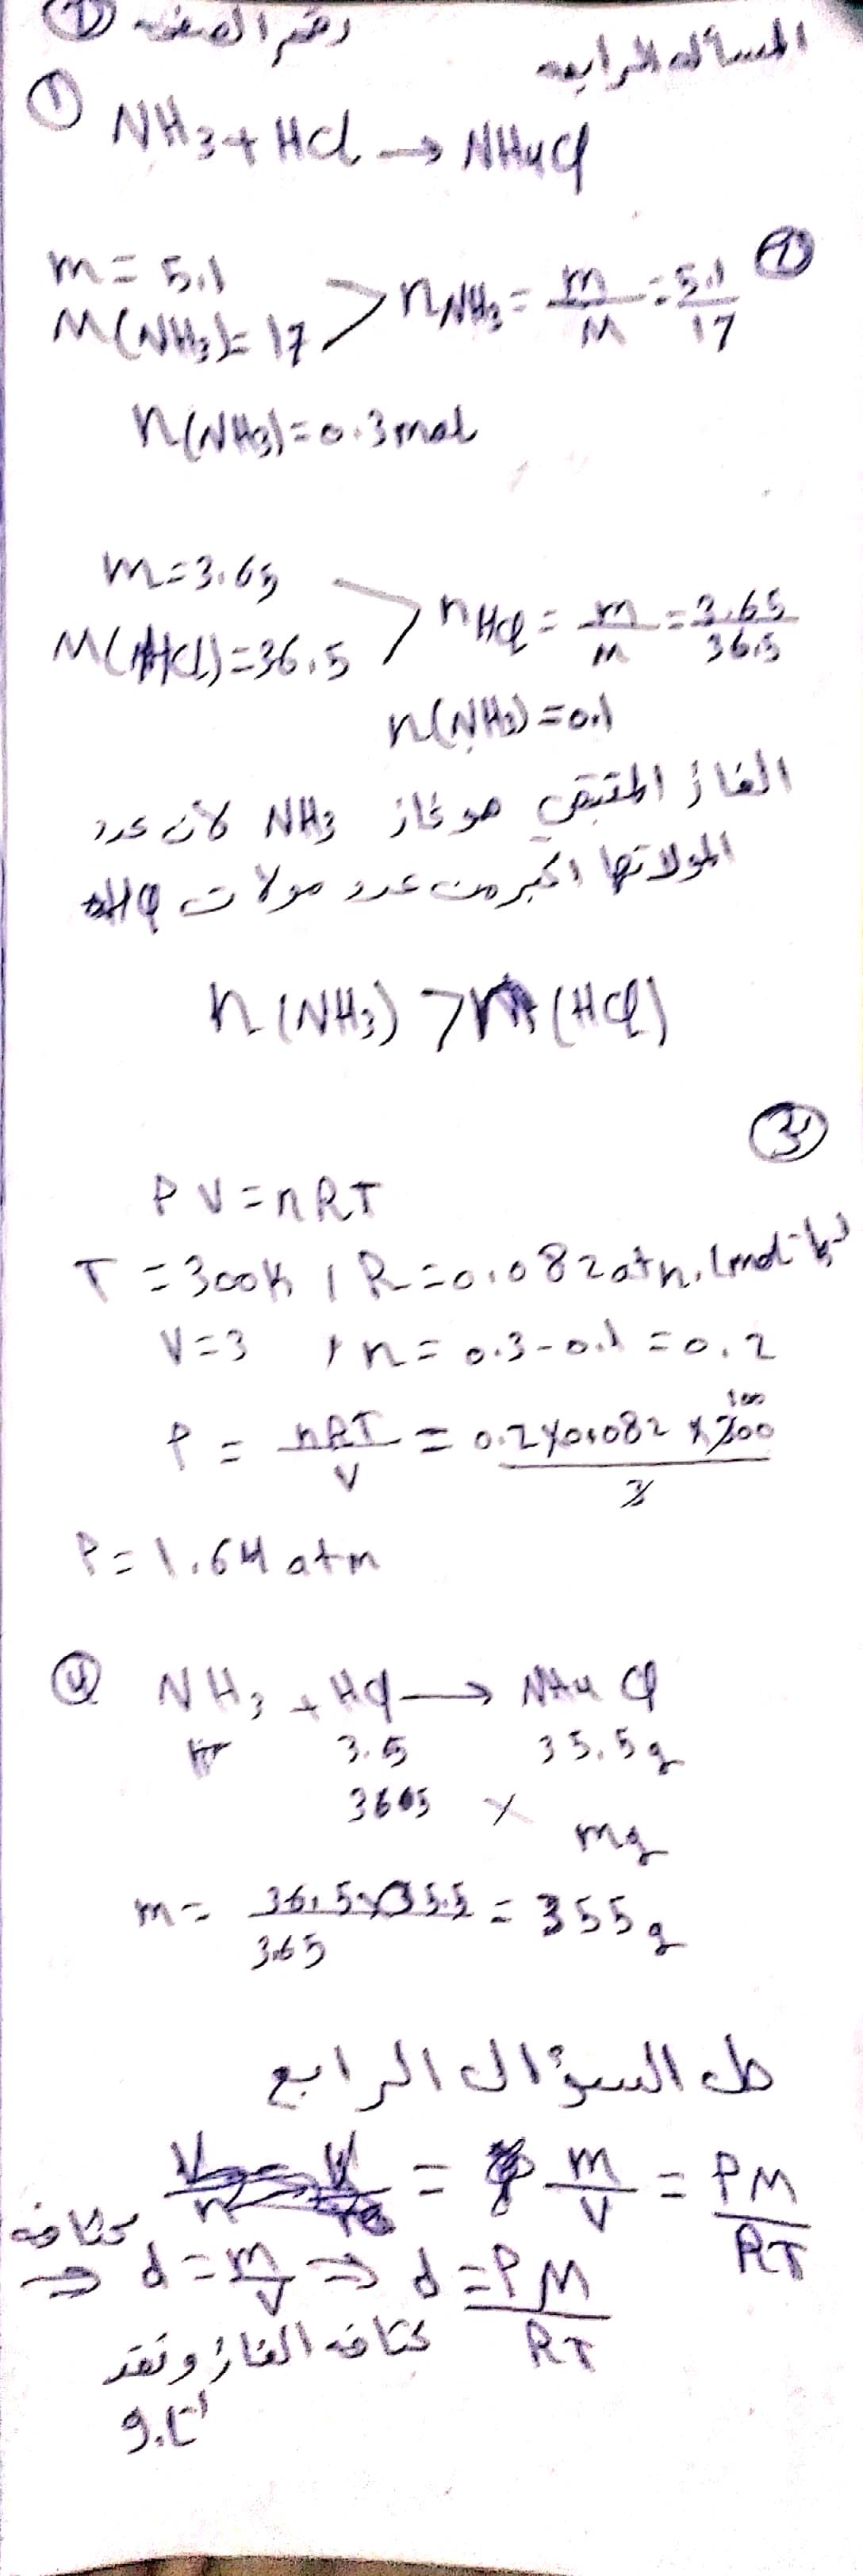 رقم الصفحه ①
المسأله الرابعه
① NH3 + HCl → NH4Cl
m = 5.1
M(NH3) = 17 > nNH3 = m/M = 5.1/17 ①
n(NH3) = 0.3 mol
m = 3.65
M(HCl) = 36.5 > nHCl = m/M = 3.65/36.5
n(NH3) = 0.1
الغاز المتبقي هو غاز NH3 لان عدد
المولاتها اكبر من عدد مولات HCl
n(NH3) > n(HCl)
③
PV = nRT
T = 300K , R = 0.082 atm.l mol-1 k-1
V = 3 , n = 0.3 - 0.1 = 0.2
P = nRT/V = 0.2×0.082×300/3 100
P = 1.64 atm
④ NH3 + HCl → NH4Cl
3.5 35.5g
3665 × mg
m = 36.5×35.5/3.65 = 355g
حل السؤال الرابع
= m/V = PM/RT
كثافه
⇒ d = m/V ⇒ d = PM/RT
كثافه الغاز وتقد
g.l-1